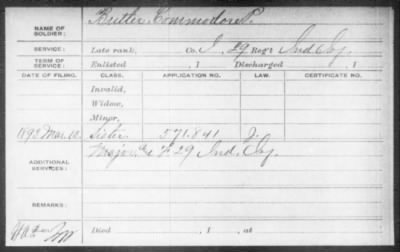 NAME OF SOLDIER: Butler, Commodore P.
SERVICE: Late rank, Co. I, 29 Reg't Ind. Inf.
TERM OF SERVICE: Enlisted , 1 Discharged , 1
DATE OF FILING. CLASS. APPLICATION NO. LAW. CERTIFICATE NO.
Invalid,
Widow,
Minor,
1892 Mar. Sister 571.841
ADDITIONAL SERVICES: Major F 29 Ind. Inf.
REMARKS:
Died , 1 , at